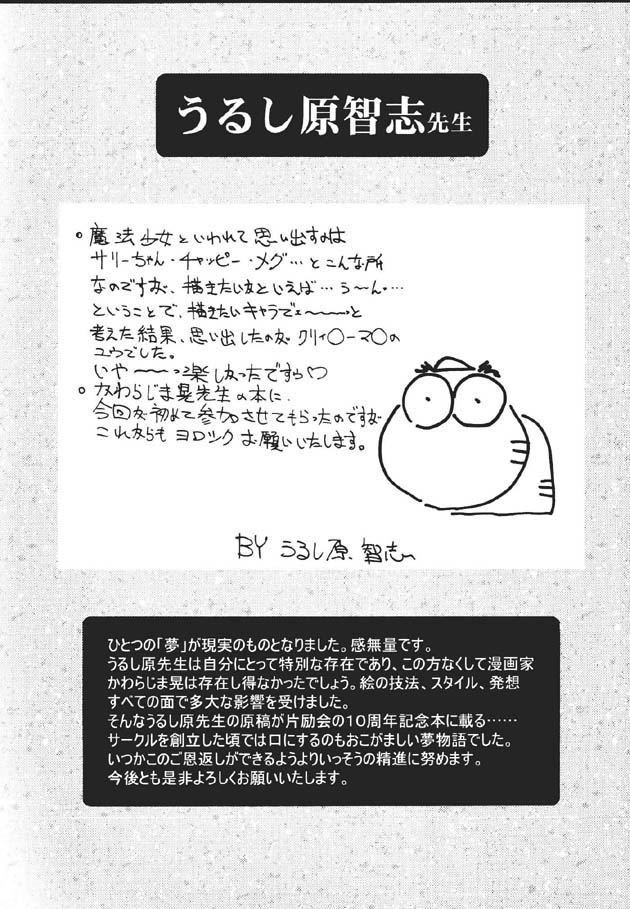 うるし原智志先生
。魔法少女といわれて思い出すのは
サリーちゃん・チャッピー・メグ…とこんな所
なのですが、描きたい女といえば…う〜ん…
ということで、描きたいキャラでェ〜〜〜っと
考えた結果、思い出したのがクリィ〇ーマ〇の
ユウでした。
いや〜〜っ楽しかったですゥ♡
。かわらじま晃先生の本に、
今回が初めて参加させてもらったのですが
これからもヨロシクお願いいたします。
BY うるし原 智志
ひとつの「夢」が現実のものとなりました。感無量です。
うるし原先生は自分にとって特別な存在であり、この方なくして漫画家
かわらじま晃は存在し得なかったでしょう。絵の技法、スタイル、発想
すべての面で多大な影響を受けました。
そんなうるし原先生の原稿が片励会の10周年記念本に載る……
サークルを創立した頃では口にするのもおこがましい夢物語でした。
いつかこのご恩返しができるようよりいっそうの精進に努めます。
今後とも是非よろしくお願いいたします。